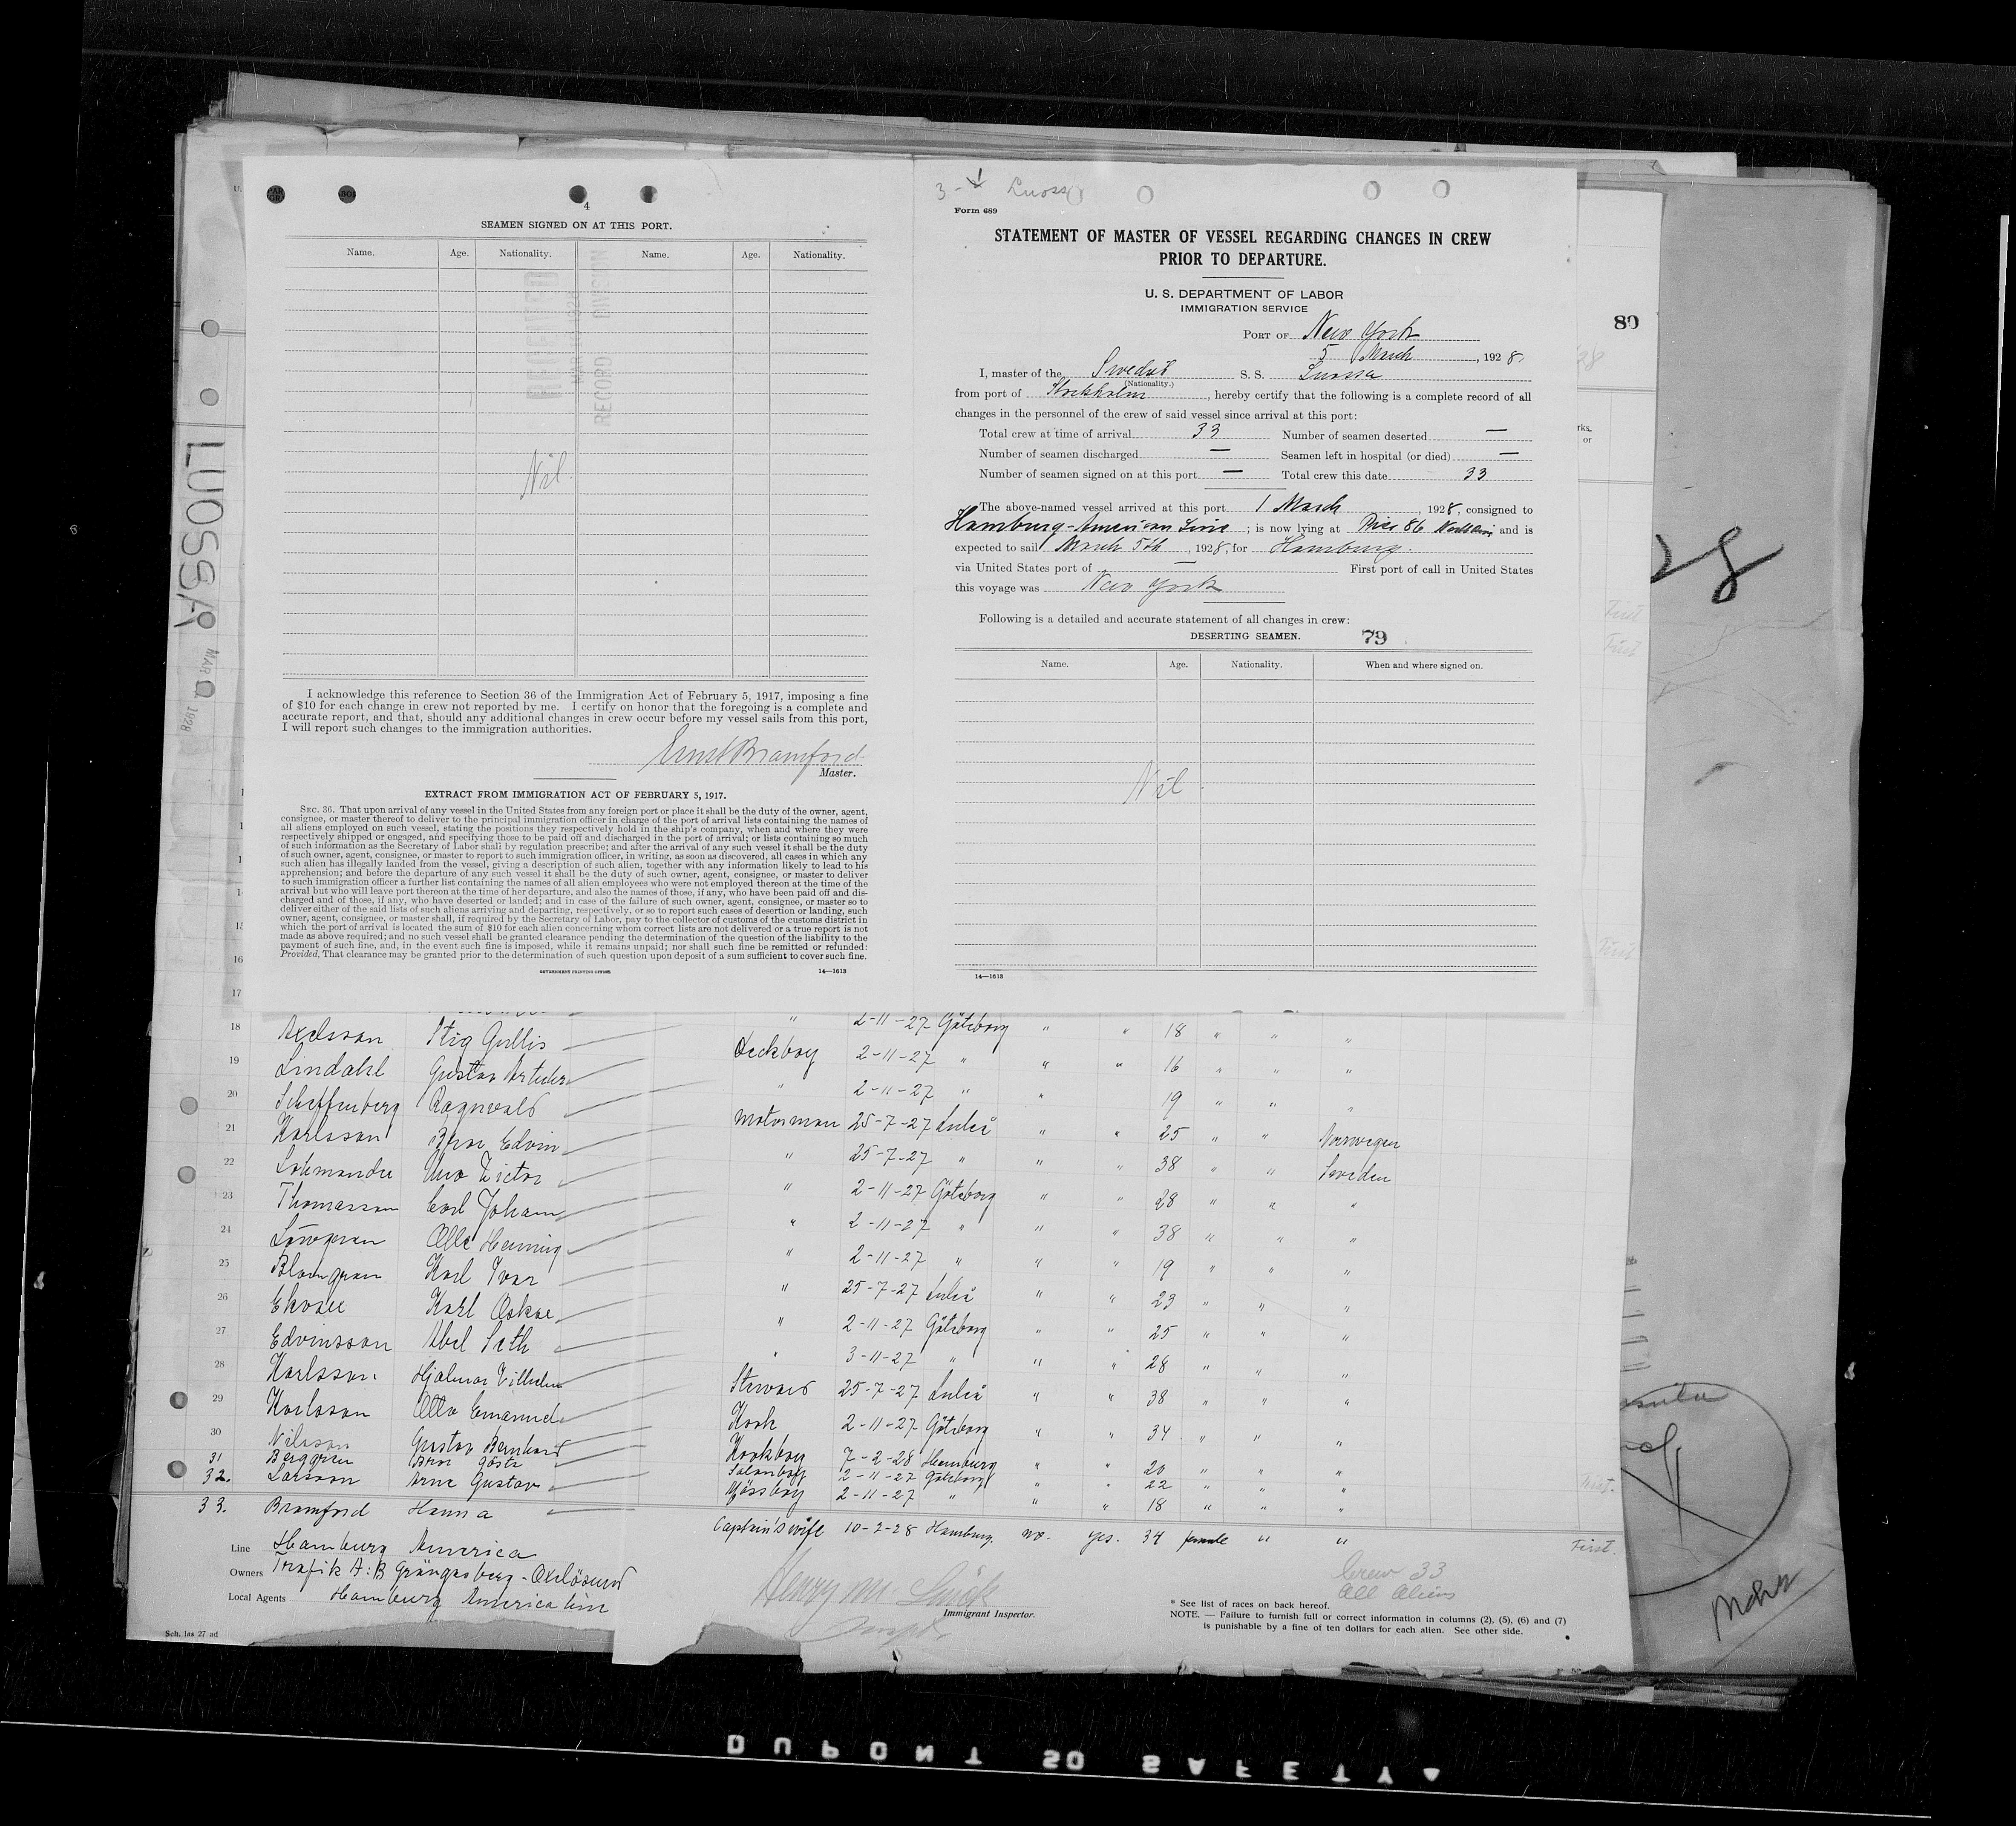 4
SEAMEN SIGNED ON AT THIS PORT.
Name. Age. Nationality. Name. Age. Nationality.
RECEIVED
RECORD DIVISION
Nil
I acknowledge this reference to Section 36 of the Immigration Act of February 5, 1917, imposing a fine
of $10 for each change in crew not reported by me. I certify on honor that the foregoing is a complete and
accurate report, and that, should any additional changes in crew occur before my vessel sails from this port,
I will report such changes to the immigration authorities.
Ernst Bramford
Master.
EXTRACT FROM IMMIGRATION ACT OF FEBRUARY 5, 1917.
SEC. 36. That upon arrival of any vessel in the United States from any foreign port or place it shall be the duty of the owner, agent,
consignee, or master thereof to deliver to the principal immigration officer in charge of the port of arrival lists containing the names of
all aliens employed on such vessel, stating the positions they respectively hold in the ship's company, when and where they were
respectively shipped or engaged, and specifying those to be paid off and discharged in the port of arrival; or lists containing so much
of such information as the Secretary of Labor shall by regulation prescribe; and after the arrival of any such vessel it shall be the duty
of such owner, agent, consignee, or master to report to such immigration officer, in writing, as soon as discovered, all cases in which any
such alien has illegally landed from the vessel, giving a description of such alien, together with any information likely to lead to his
apprehension; and before the departure of any such vessel it shall be the duty of such owner, agent, consignee, or master to deliver
to such immigration officer a further list containing the names of all alien employees who were not employed thereon at the time of the
arrival but who will leave port thereon at the time of her departure, and also the names of those, if any, who have been paid off and dis-
charged and of those, if any, who have deserted or landed; and in case of the failure of such owner, agent, consignee, or master so to
deliver either of the said lists of such aliens arriving and departing, respectively, or so to report such cases of desertion or landing, such
owner, agent, consignee, or master shall, if required by the Secretary of Labor, pay to the collector of customs of the customs district in
which the port of arrival is located the sum of $10 for each alien concerning whom correct lists are not delivered or a true report is not
made as above required; and no such vessel shall be granted clearance pending the determination of the question of the liability to the
payment of such fine, and, in the event such fine is imposed, while it remains unpaid; nor shall such fine be remitted or refunded:
Provided, That clearance may be granted prior to the determination of such question upon deposit of a sum sufficient to cover such fine.
GOVERNMENT PRINTING OFFICE 14—1613
3- Luossa
Form 689
STATEMENT OF MASTER OF VESSEL REGARDING CHANGES IN CREW
PRIOR TO DEPARTURE.
U. S. DEPARTMENT OF LABOR
IMMIGRATION SERVICE
PORT OF New York
5 March, 1928.
I, master of the Swedish S. S. Luossa
(Nationality.)
from port of Stockholm, hereby certify that the following is a complete record of all
changes in the personnel of the crew of said vessel since arrival at this port:
Total crew at time of arrival 33 Number of seamen deserted —
Number of seamen discharged — Seamen left in hospital (or died) —
Number of seamen signed on at this port — Total crew this date 33
The above-named vessel arrived at this port 1 March, 1928, consigned to
Hamburg-American Line; is now lying at Pier 86 and is
expected to sail March 5th, 1928, for Hamburg.
via United States port of — First port of call in United States
this voyage was New York
Following is a detailed and accurate statement of all changes in crew:
DESERTING SEAMEN. 79
Name. Age. Nationality. When and where signed on.
Nil
14—1613
80
LUOSSA
MAR 1928
16
17
18 Axelsson Stig Gullis " 2-11-27 Göteborg " " 18 " " "
19 Lindahl Gustav Artur Deckboy 2-11-27 " " " 16 " " "
20 Scheffenberg Ragnvald " 2-11-27 " " 19 " " "
21 Karlsson Bror Edvin Motorman 25-7-27 Luleå " " 25 " " Norwegen
22 Uno Victor " 25-7-27 " " " 38 " " Sweden
23 Thomasson Carl Johan " 2-11-27 Göteborg " " 28 " " "
24 Lövgren Olle Henning " 2-11-27 " " " 38 " " "
25 Blomgren Karl Ivar " 2-11-27 " " " 19 " " "
26 Karl Oskar " 25-7-27 Luleå " " 23 " " "
27 Edvinsson Abel Seth " 2-11-27 Göteborg " " 25 " " "
28 Karlsson Hjalmar Vilhelm " 3-11-27 " " " 28 " " "
29 Karlsson Otto Emanuel Steward 25-7-27 Luleå " " 38 " " "
30 Nilsson Gustav Bernhard Kock 2-11-27 Göteborg " " 34 " " "
31 Berggren Bror Gösta Kockboy 7-2-28 Hamburg " " 20 " " "
32. Larsson Arne Gustav 2-11-27 Göteborg " " 22 " " "
Mässboy 2-11-27 " " " 18 " " "
33. Bramford Hanna Captain's wife 10-2-28 Hamburg. no. yes. 34 female " " First.
Line Hamburg America
Owners Trafik A:B Grängesberg-Oxelösund
Local Agents Hamburg America line
Immigrant Inspector.
Crew 33
All Aliens
* See list of races on back hereof.
NOTE. — Failure to furnish full or correct information in columns (2), (5), (6) and (7)
is punishable by a fine of ten dollars for each alien. See other side.
Sch. las 27 ad
DUPONT SO SAFETY